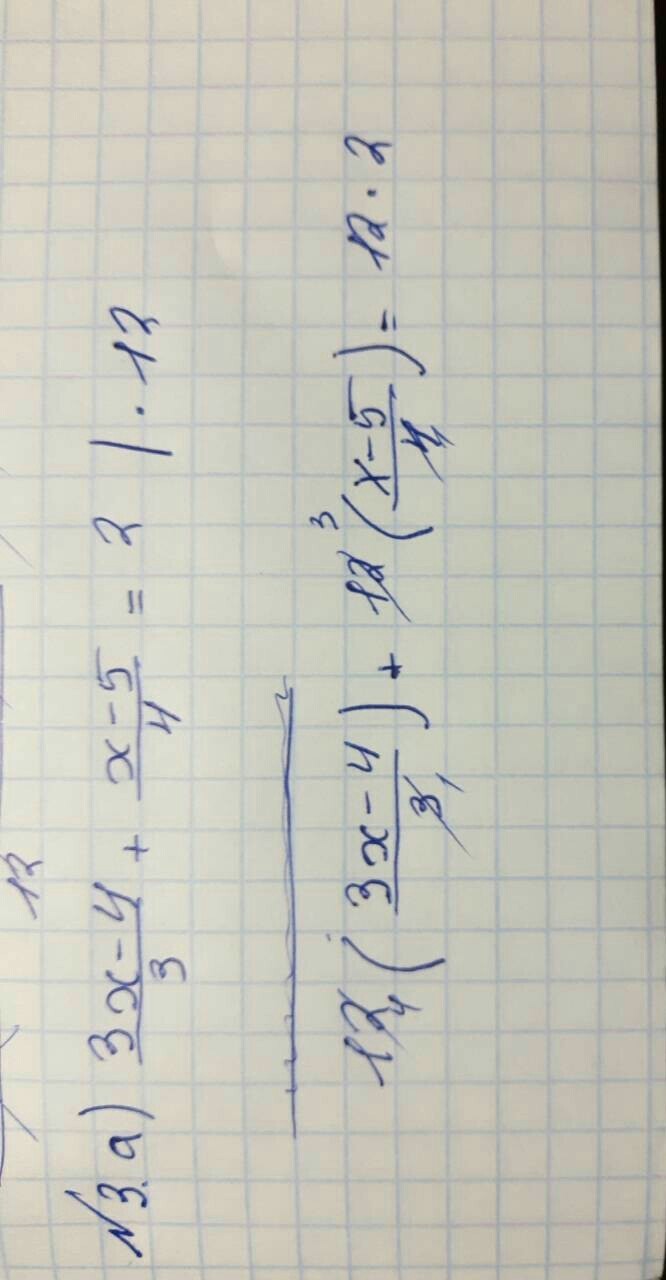 12
№3. а) (3x-4)/3 + (x-5)/4 = 2 | · 12
12 4 ((3x-4)/3 1) + 12 3 ((x-5)/4 1) = 12 · 2